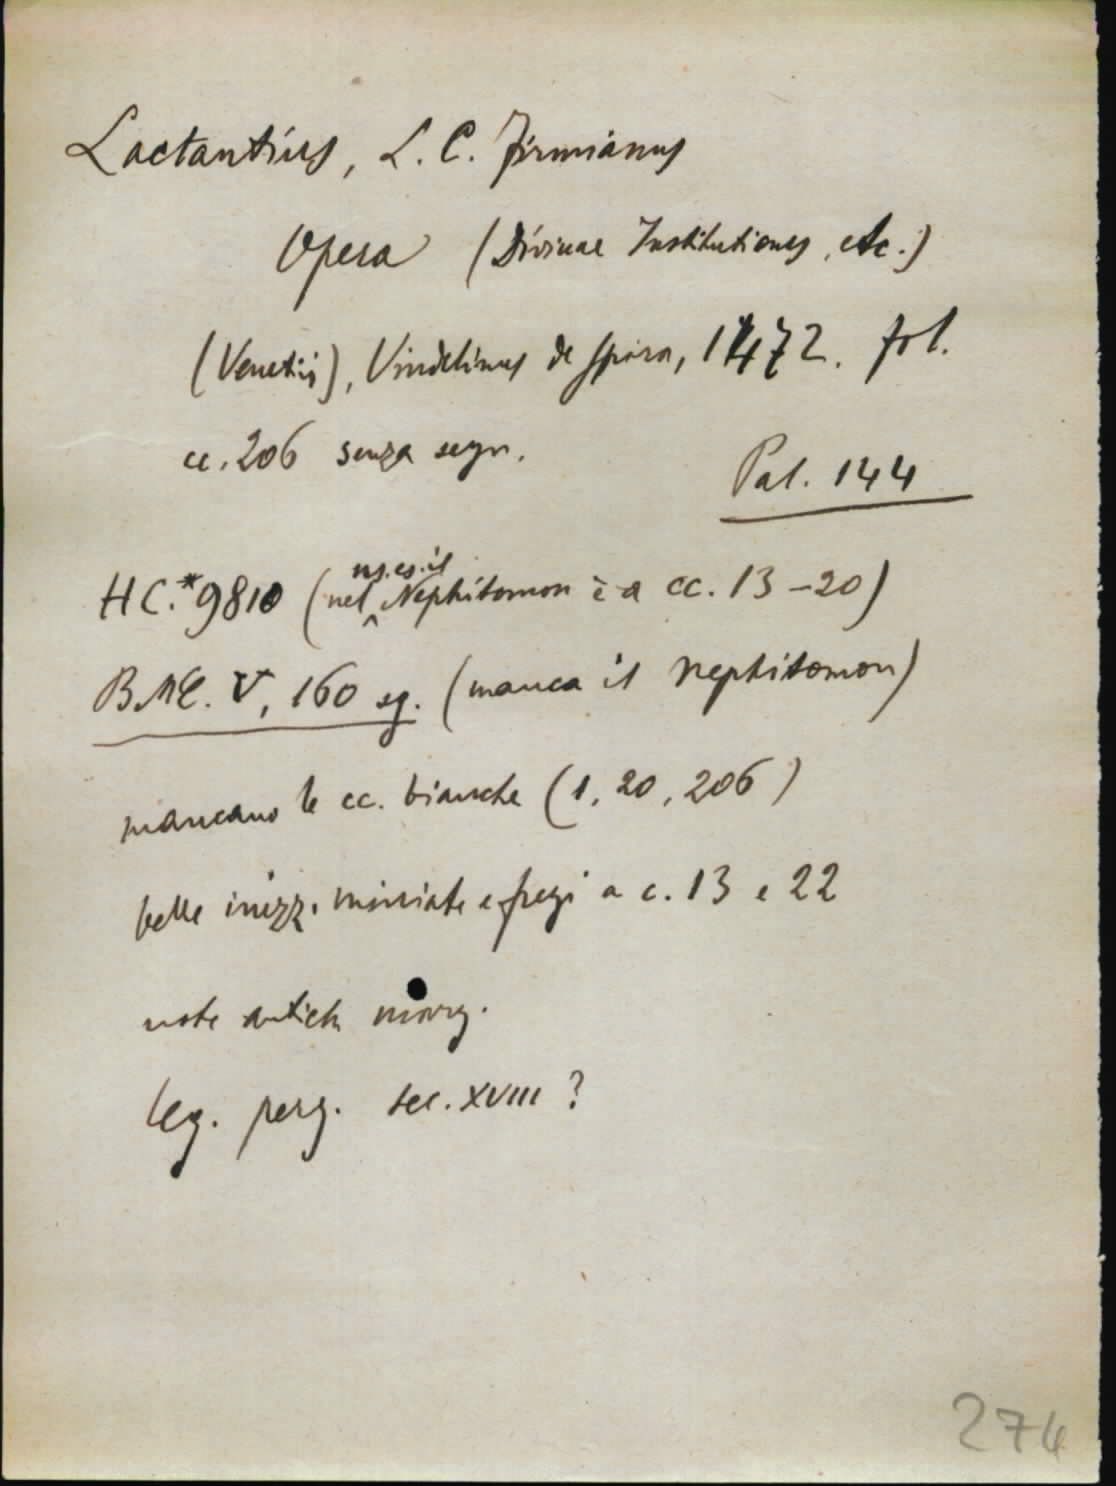 Lactantius, L. C. Firmianus
Opera (Divinae Institutiones, etc.)
(Venetiis), Vindelinus de Spira, 1472. fol.
cc. 206 senza segn.
Pal. 144
HC.*9810 (nel ns. es. il Nephitomon è a cc. 13-20)
BMC. V, 160 sg. (manca il Nephitomon)
mancano le cc. bianche (1, 20, 206)
belle inizz. miniate e fregi a c. 13 e 22
note antich marg.
leg. perg. sec. XVIII ?
274